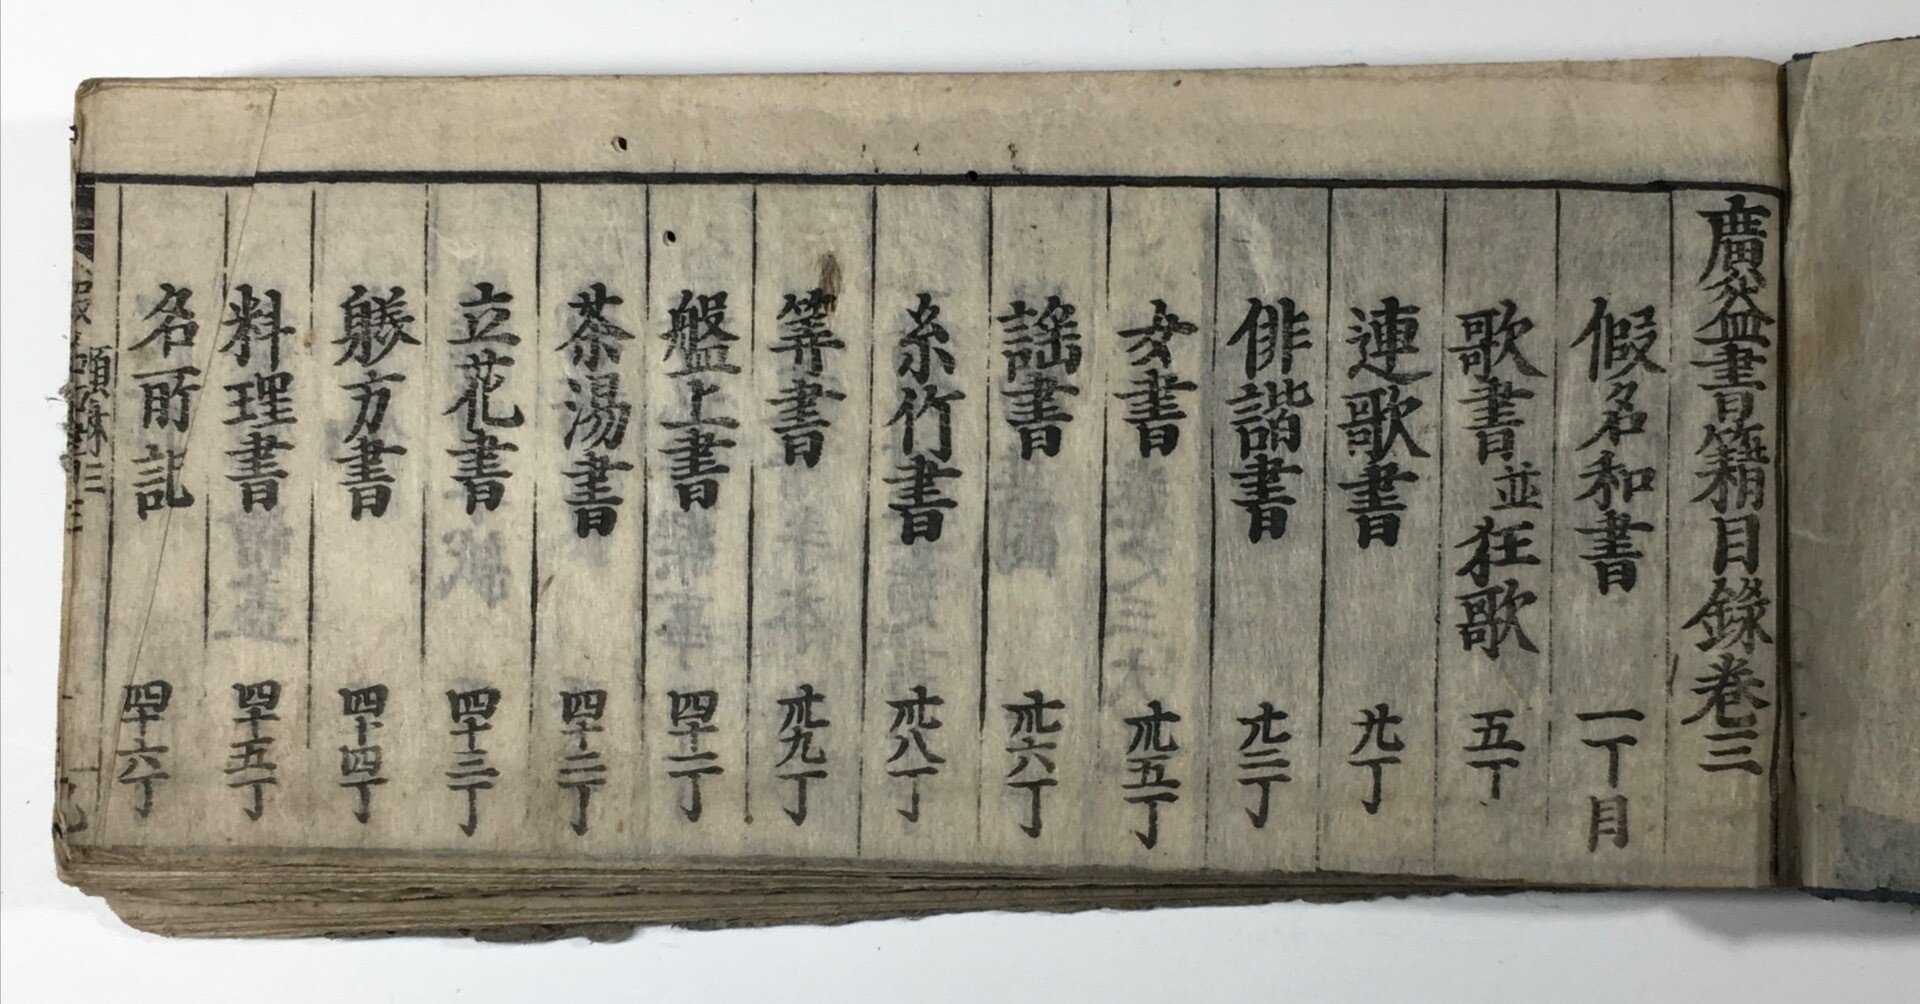 廣益書籍目錄卷三
假名和書 一丁目
歌書並狂歌 五丁
連歌書 九丁
俳諧書 廿二丁
女書 卅五丁
謠書 卅六丁
糸竹書 卅八丁
筭書 卅九丁
盤上書 四十一丁
茶湯書 四十二丁
立花書 四十三丁
躾方書 四十四丁
料理書 四十五丁
名所記 四十六丁